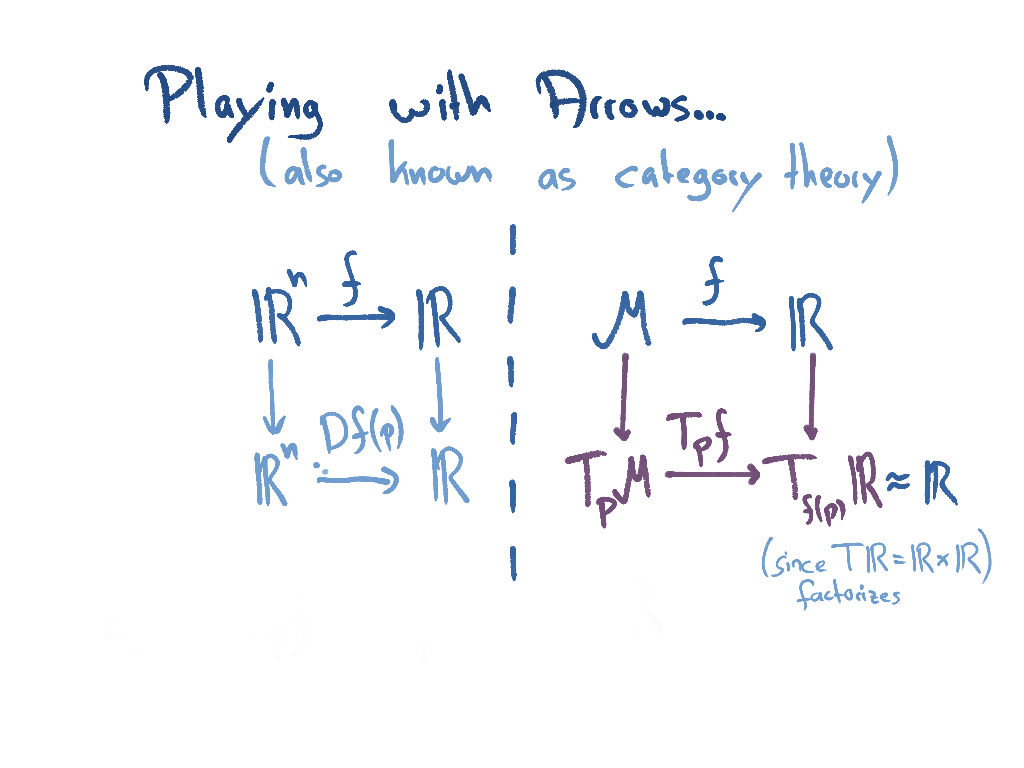 Playing with Arrows...
(also known as category theory)
ℝⁿ f→ ℝ
M f→ ℝ
Df(p)
ℝⁿ → ℝ
Tₚf
TₚM → T_f(p) ℝ ≈ ℝ
(since Tℝ = ℝ × ℝ)
factorizes